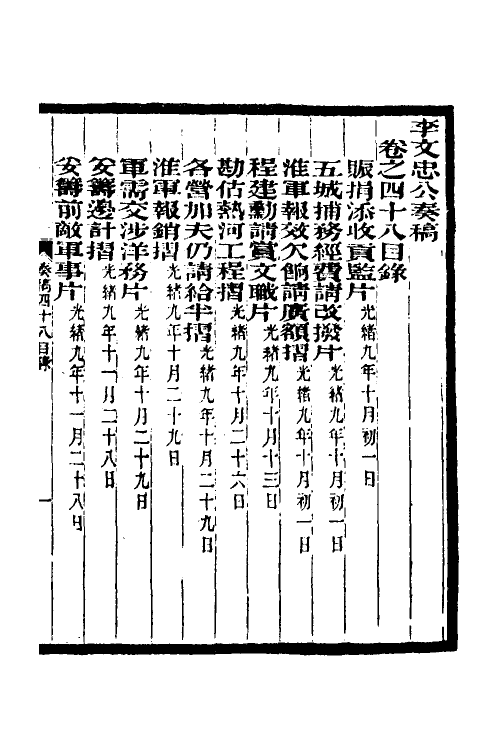 李文忠公奏稿
卷之四十八目錄
賑捐添收貢監片光緒九年十月初一日
五城捕務經費請改撥片光緒九年十月初一日
淮軍報效欠餉請廣額摺光緒九年十月初一日
程建勳請賞文職片光緒九年十月十三日
勘估熱河工程摺光緒九年十月二十六日
各營加夫仍請給半摺光緒九年十月二十九日
淮軍報銷摺光緒九年十月二十九日
軍需交涉洋務片光緒九年十月二十九日
妥籌邊計摺光緒九年十一月二十八日
妥籌前敵軍事片光緒九年十一月二十八日
奏稿四十八目錄
一